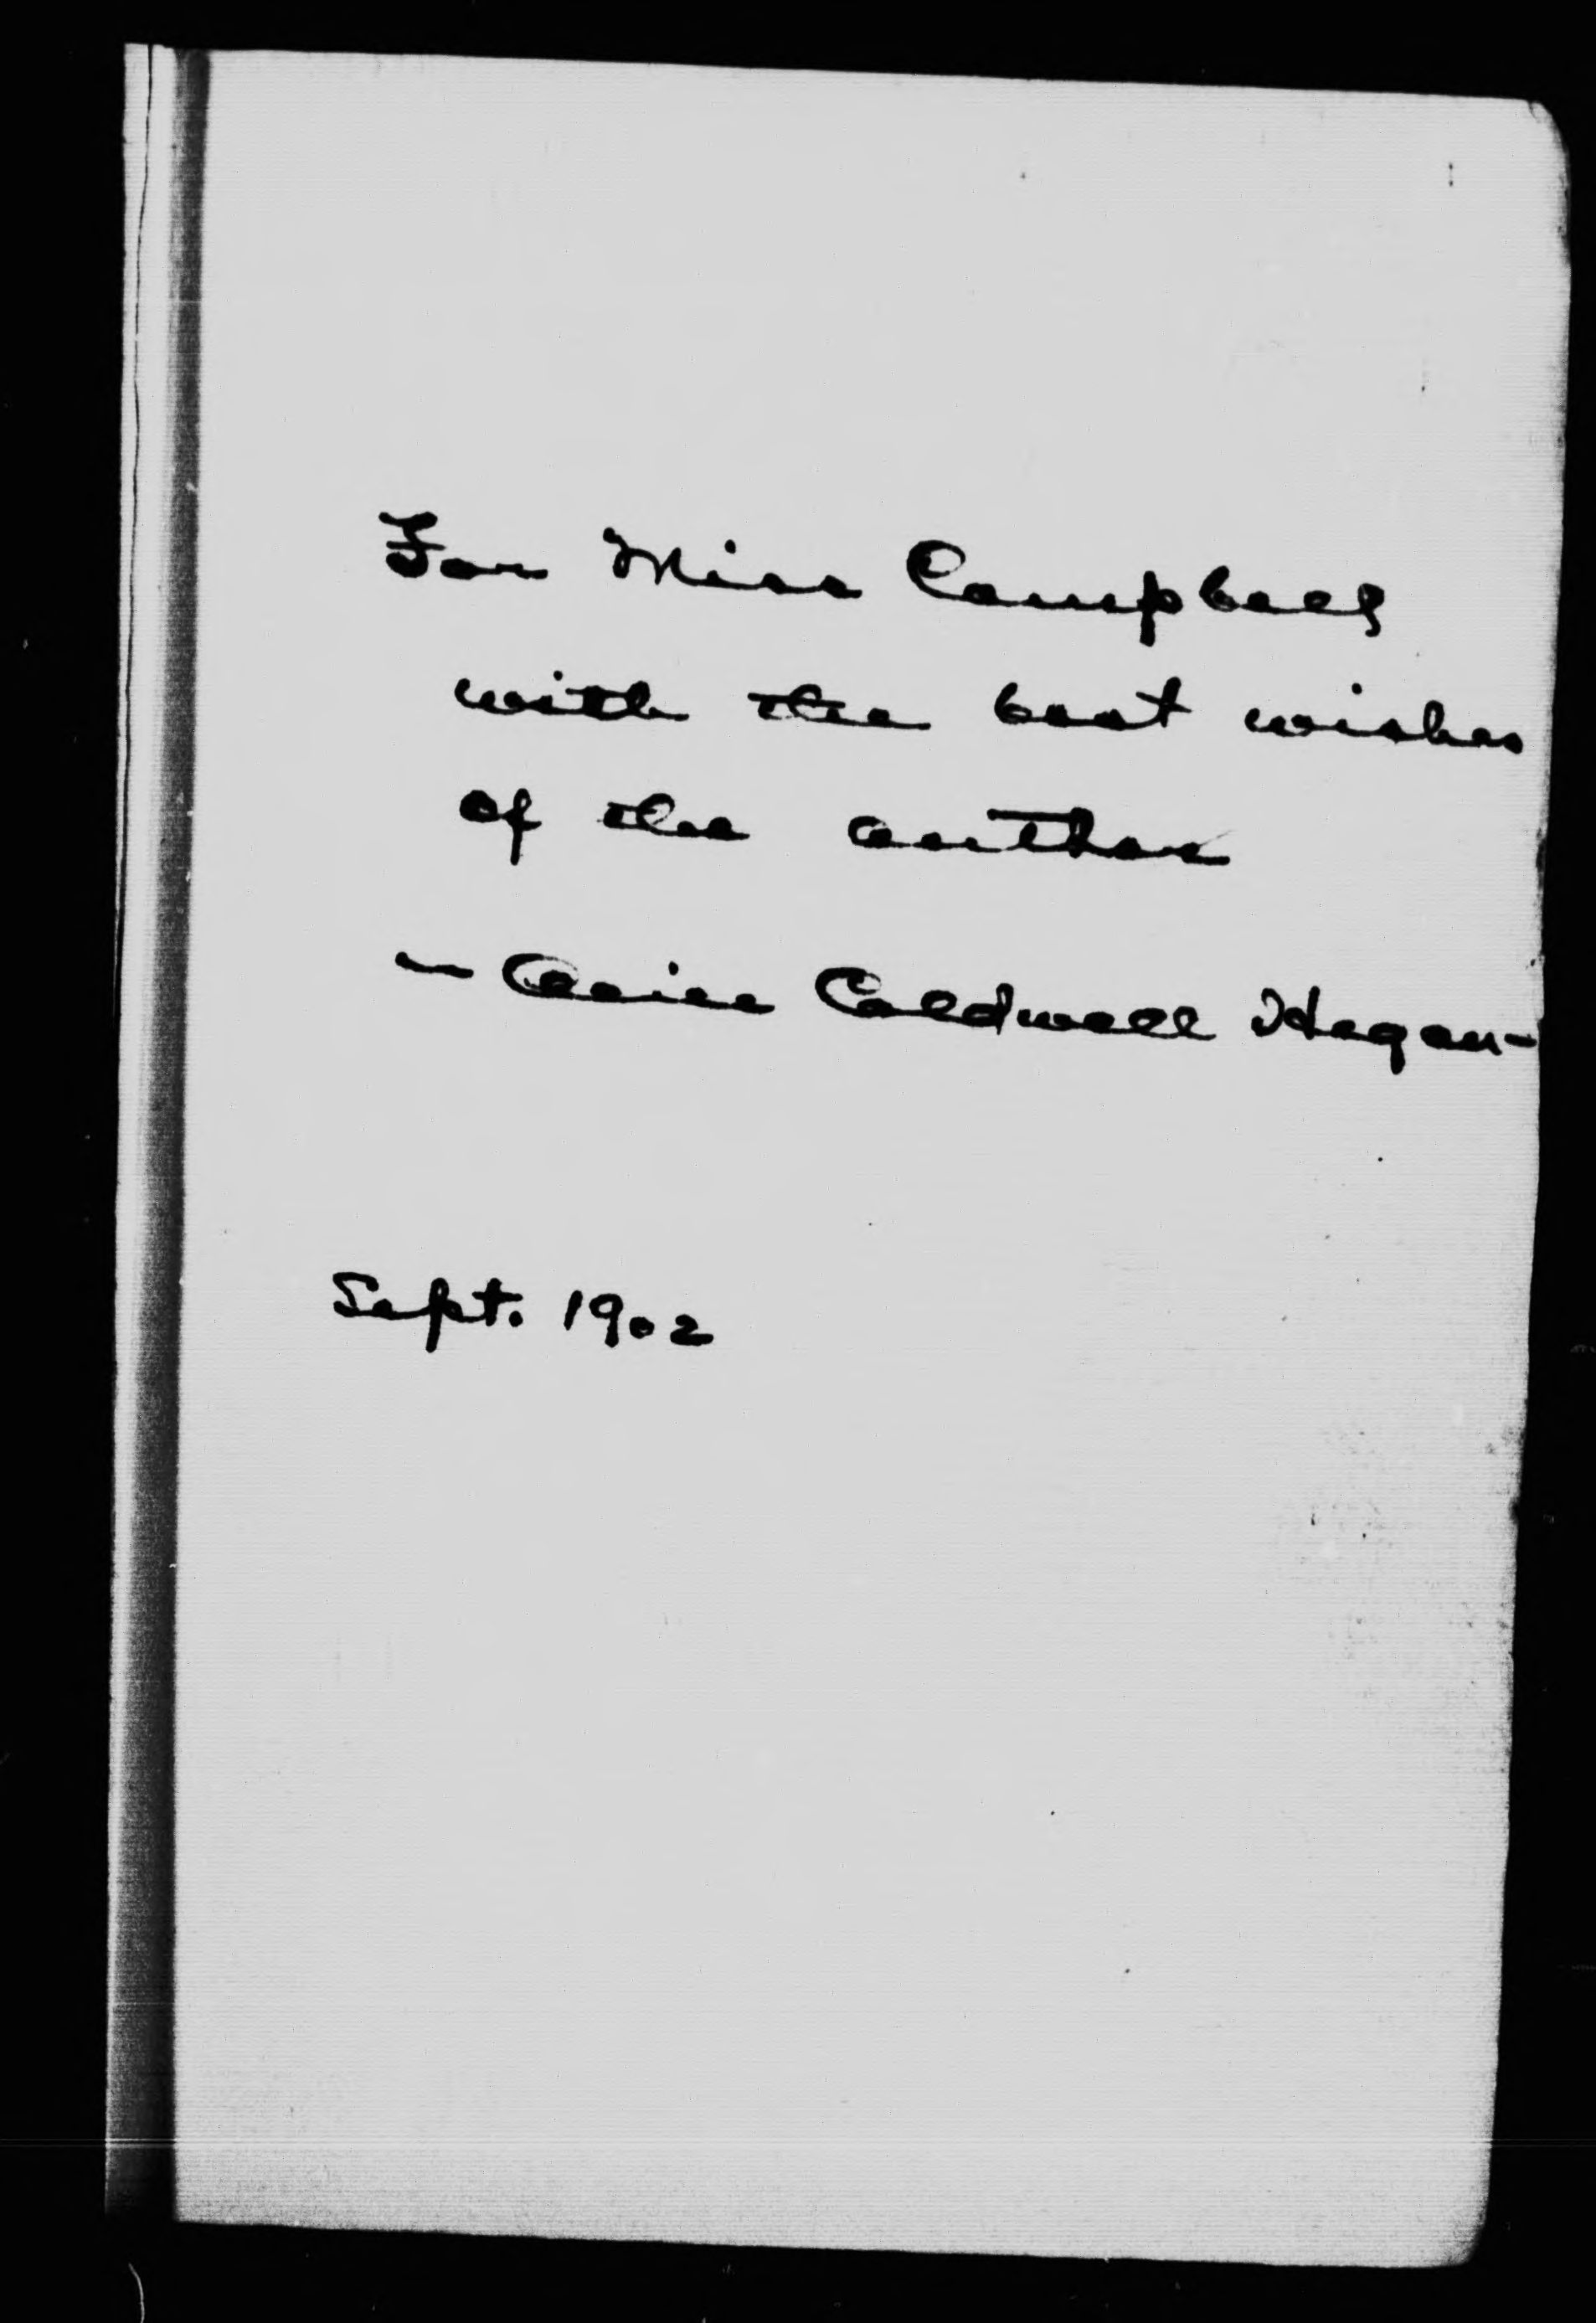 For Miss Campbell
with the best wishes
of the author
— Alice Caldwell Hegan -
Sept. 1902